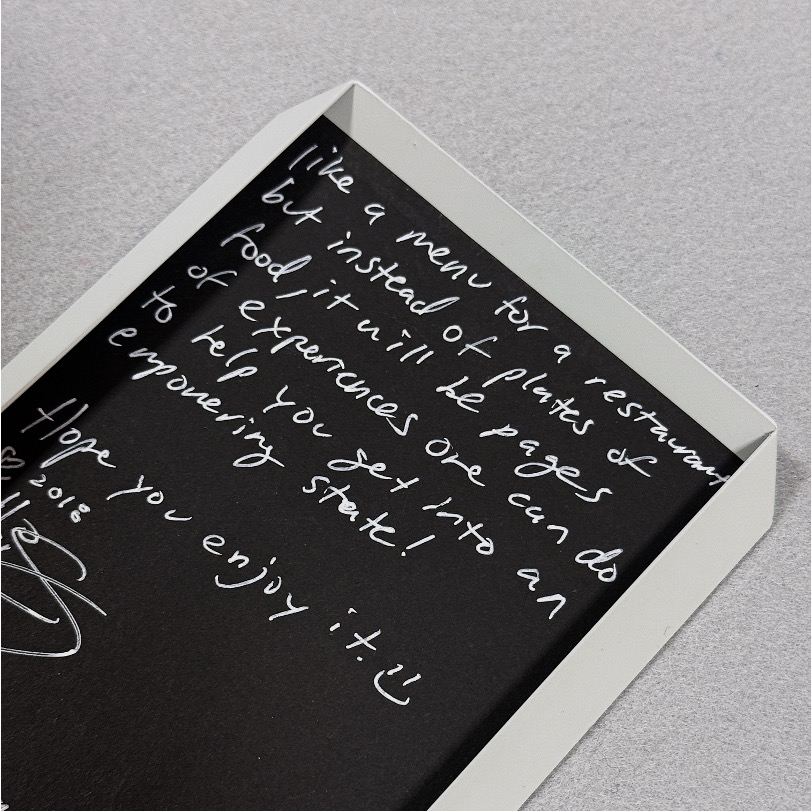 like a menu for a restaurant
but instead of plates of
food, it will be pages
of experiences one can do
to help you get into an
empowering state!
Hope you enjoy it.
2018